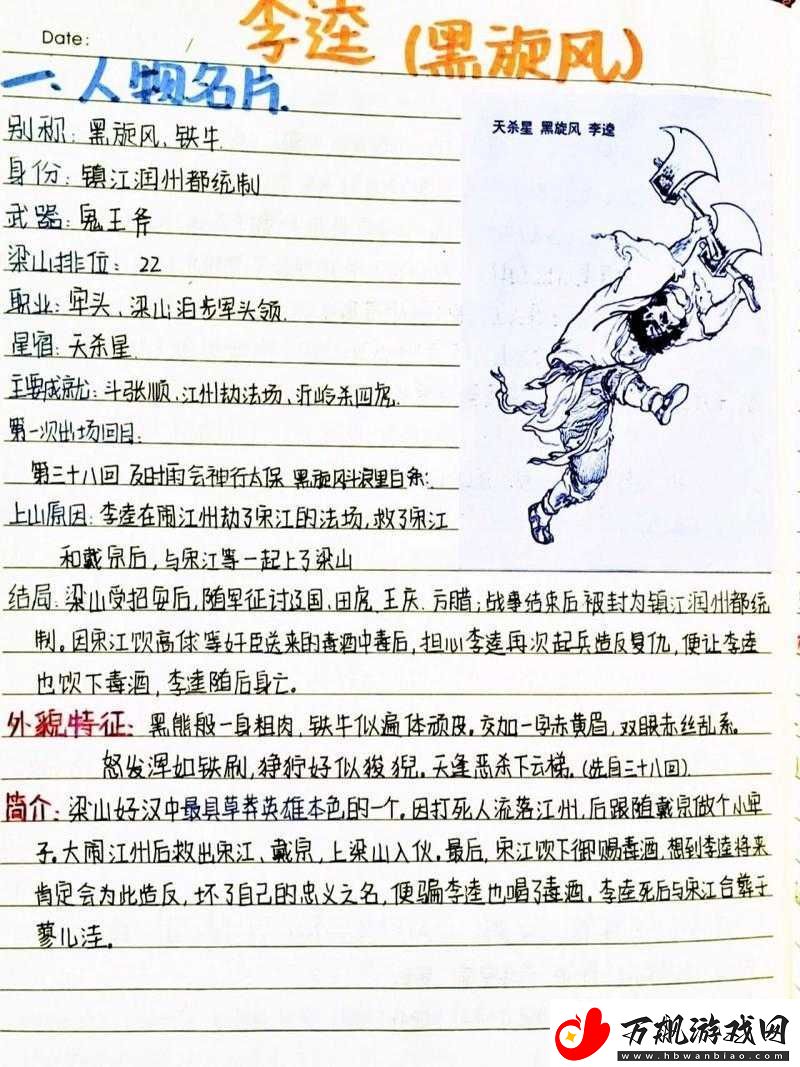 Date:
李逵(黑旋风)
一、人物名片
天杀星 黑旋风 李逵
别称:黑旋风、铁牛
身份:镇江润州都统制
武器:鬼王斧
梁山排位:22
职业:牢头、梁山泊步军头领
星宿:天杀星
主要成就:斗张顺、江州劫法场、沂岭杀四虎
第一次出场回目:
第三十八回 及时雨会神行太保 黑旋风斗浪里白条:
上山原因:李逵在闹江州劫了宋江的法场,救了宋江
和戴宗后,与宋江等一起上了梁山
结局:梁山受招安后,随军征讨辽国、田虎、王庆、方腊;战事结束后被封为镇江润州都统
制。因宋江饮高俅等奸臣送来的毒酒中毒后,担心李逵再次起兵造反复仇,便让李逵
也饮下毒酒,李逵随后身亡。
外貌特征:黑熊般一身粗肉,铁牛似遍体顽皮。交加一字赤黄眉,双眼赤丝乱系。
怒发浑如铁刷,狰狞好似狻猊。天蓬恶杀下云梯。(选自三十八回)
简介:梁山好汉中最具草莽英雄本色的一个。因打死人流落江州,后跟随戴宗做个小牢
子。大闹江州后救出宋江、戴宗,上梁山入伙。最后,宋江饮下御赐毒酒,想到李逵将来
肯定会为此造反,坏了自己的忠义之名,便骗李逵也喝了毒酒。李逵死后与宋江合葬于
蓼儿洼。
万飙游戏网
www.hbwanbiao.com